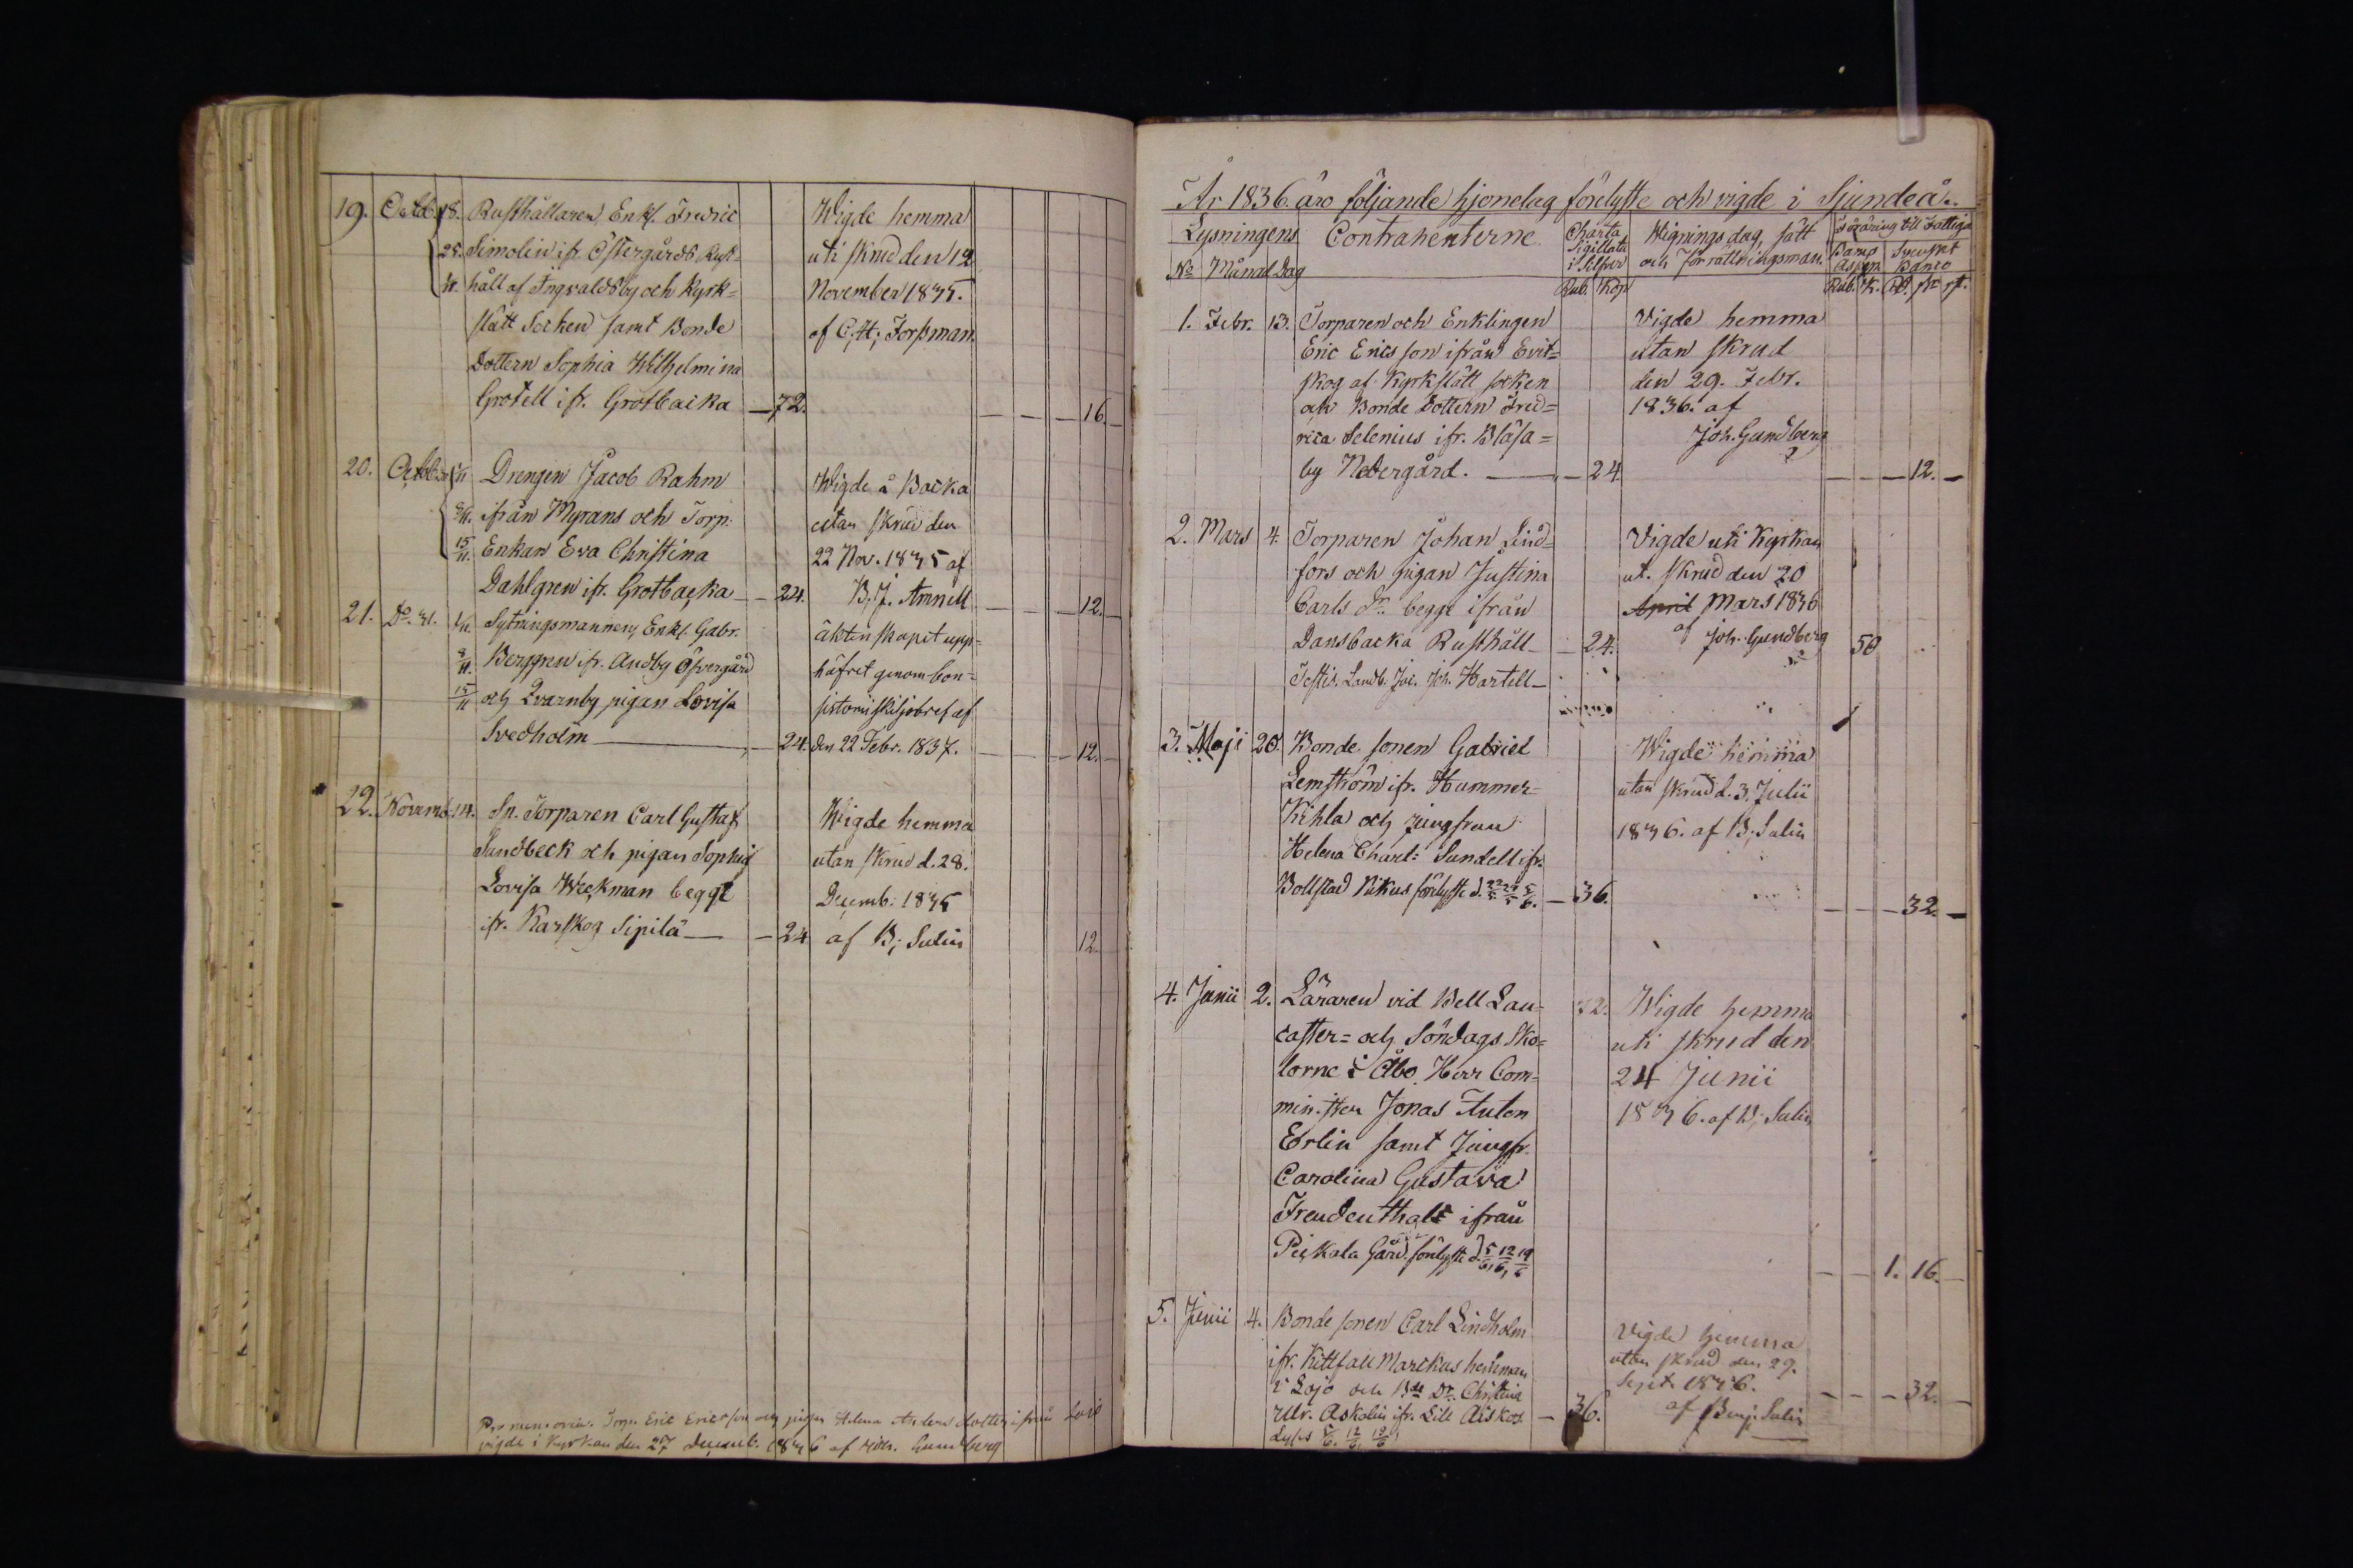 19. Octob. 18. Rusthållaren Enkl. Fredric
25. Simolin ifr. Östergårds Rust-
håll af Ingvaldsby och Kyrk=
slätt Socken samt Bonde
Dottern Sophia Wilhelmina
Grotell ifr. Grotbacka — 72.
Wigde hemma
uti skrud den 12
November 1835.
af C. H. Forsman.
— — — 16 —
20. Octob. Drengen Jacob Rahm
8/11. ifrån Myrans och Torp.
15/11. Enkan Eva Christina
Dahlgren ifr. Grotbacka — 24.
Wigde å Backa
utan skrud den
22 Nov. 1835 af
B. J. Amnell
— — — 12. —
21. Do. 31. 1/11. Sytningsmannen Enkl. Gabr.
8/11. Berggren ifr. Andby Öfvergård
15/11 och Qvarnby pigan Lovisa
Svedholm — 24.
äktenskapet upp=
häfvet genom Con=
sistorii skiljobref af
den 22 Febr. 1837.
— — — 12. —
22. Novemb. 14. Sn. Torparen Carl Gustaf
Sundbeck och pigan Sophia
Lovisa Weckman begge
ifr. Karskog Sipilä — 24
Wigde hemma
utan skrud d. 28.
Decemb: 1835
af B; Salin
12
Pro memoria. Torp. Eric Ericsson och pigan Helena Anders dotter ifrån Lojo
vigde i Kyrkan den 27 Decemb. 1836 af Joh. Gundberg
År 1836. äro följande hjonelag förelyste och vigde i Sjundeå.
Lysningens Contrahenterne. Charta Sigillata i Silfver Wignings dag, sätt och Förrättningsman. Föräring till Fattiga
No Månad Dag Banco Assign. Svenskt Banco
Rub. Kop Rub. K. Rd. sk. rst.
1. Febr. 13. Torparen och Enklingen
Eric Ericsson ifrån Evit=
skog af Kyrkslätt socken
och Bonde Dottern Fred=
rica Selenius ifr. Blåsa=
by Nedergård. — 24.
Vigde hemma
utan skrud
den 29. Febr.
1836. af
Joh. Gundberg
— — — 12. —
2. Mars 4. Torparen Johan Lind=
fors och pigan Justina
Carls Dr. begge ifrån
Dansbacka Rusthåll — 24.
Testis. Landb. Jac. Joh. Hartell —
Vigde uti Kyrkan
ut. skrud den 20
April Mars 1836
af Joh. Gundberg
50
3. Maji 20. Bonde sonen Gabriel
Lemström ifr. Hummer=
Kihla och jungfrun
Helena Charl: Sundell ifr.
Bollstad Pikus förelyste d. 22/5 29/5 5/6. — 36.
Wigde hemma
utan skrud d. 3. Julii
1836. af B; Salin
— — — 32. —
4. Junii 2. Läraren vid Bell Lan-
caster= och Söndags Sko=
lorne i Åbo. Herr Com=
minister Jonas Anton
Edrlin samt Jungfr.
Carolina Gustava
Freudenthal ifrån
Pickala Gård förelyste d 5/6, 12/6, 19/6
72.
Wigde hemma
uti skrud den
24 Junii
1836. af B; Salin
— — 1. 16. —
5. Junii 4. Bonde sonen Carl Lindholm
ifr. Kittfall Marckus hemman
i Lojo och Bde Dr. Christina
Ulr. Askolin ifr. Lill Aiskos — 36.
Lyses 5/6. 12/6. 19/6
Vigde hemma
utan skrud den 29.
Sept. 1836.
af Benj. Salin
— — — 32. —